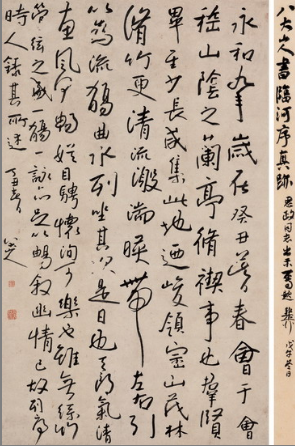 八大山人書臨河序真跡
永和九年歲在癸丑暮春會于會
稽山陰之蘭亭脩禊事也羣賢
畢至少長咸集此地迺峻領崇山茂林
脩竹更清流激湍暎帶左右引
以為流觴曲水列坐其次是日也天朗氣清
惠風和暢娛目騁懷洵可樂也雖無絲竹
管絃之盛一觴一詠亦足以暢敘幽情已故列序
時人錄其所述 丁丑春 八大山人